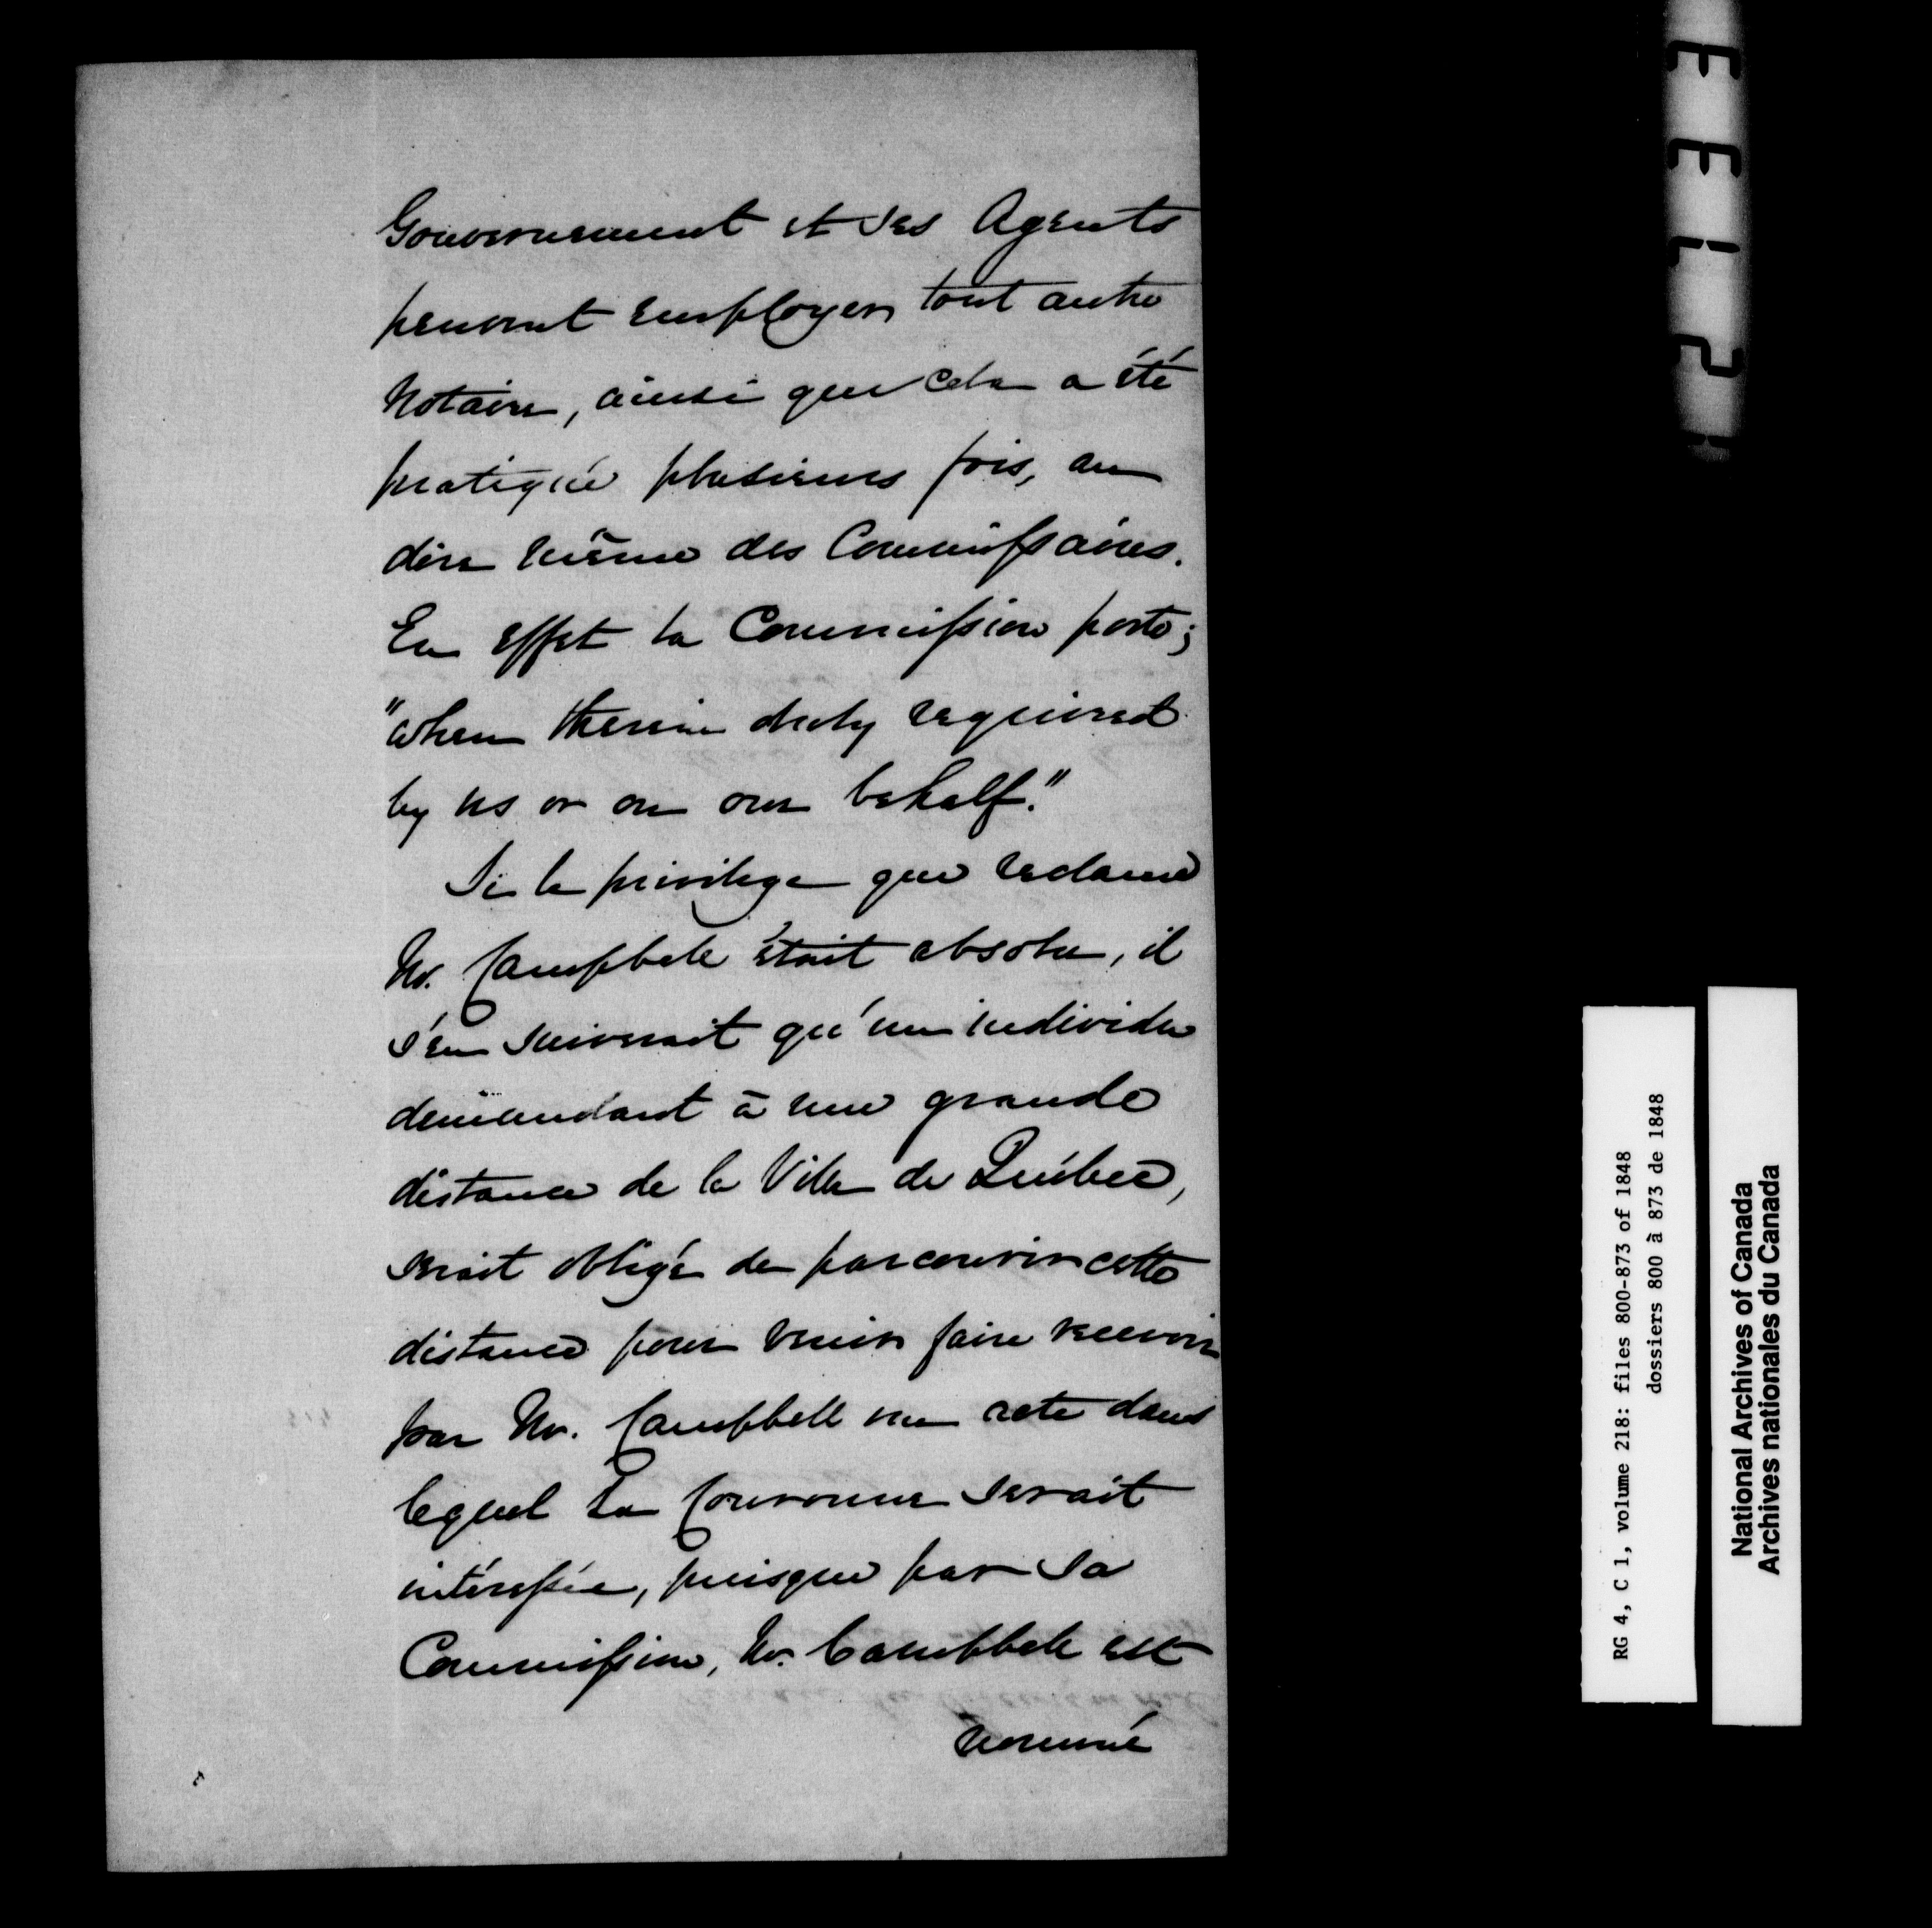 Gouvernement et ses Agents
peuvent employer tout autre
Notaire, ainsi que cela a été
pratiqué plusieurs fois, au
dire même des Commissaires.
En effet la Commission porte;
"when therein duly required
by us or on our behalf."
Si le privilege que reclame
Mr. Campbell était absolu, il
s'en suivrait qu'un individu
demeurant à une grande
distance de la Ville de Québec,
serait obligé de parcourir cette
distance pour venir faire recevoir
par Mr. Campbell un acte dans
lequel la Couronne serait
intéressée, puisque par sa
Commission, Mr. Campbell est
nommé
RG 4, C 1, volume 218: files 800-873 of 1848
dossiers 800 à 873 de 1848
National Archives of Canada
Archives nationales du Canada